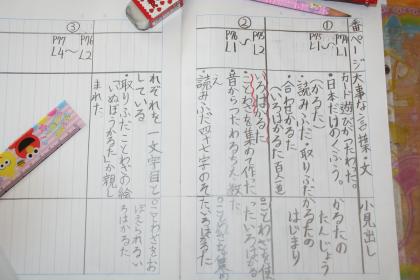 番 ページ 大事な言葉・文 小見出し
①
カード遊びがつたわった。
・日本だけのくふう。
(かるた)
・読みふだ・取りふだ
・合わせかるた
かるたの
たんじょう
かるたの
はじまり
②
P95
L2
〜
P96
L1
いろはかるた
・ことわざを集めて作った
・読みふだ 四十七字のそ
ったいろはかるた
③
P96
L2
〜
P97
L4
れぞれを一文字目と
している。
・取りふだ ことわざの絵
「いぬぼうかるた」が親し
まれた。
・ことわざをお
ぼえられるい
ろはかるた